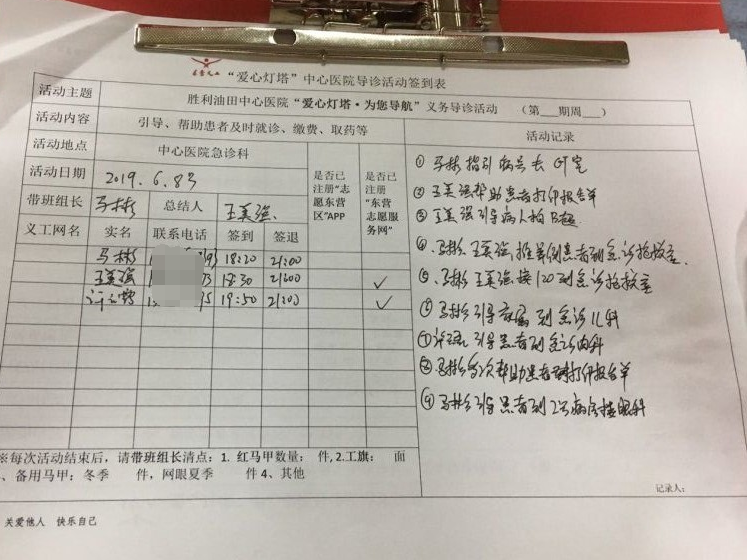 “爱心灯塔”中心医院导诊活动签到表
活动主题 胜利油田中心医院“爱心灯塔·为您导航”义务导诊活动 （第___期周___）
活动内容 引导、帮助患者及时就诊、缴费、取药等 活动记录
活动地点 中心医院急诊科
活动日期 2019.6.8号
带班组长 马彬 总结人 王美强
是否已注册“志愿东营区”APP
是否已注册“东营志愿服务网”
义工网名 实名 联系电话 签到 签退
马彬 18:20 21:00
王美强 18:30 21:00 ✓
19:50 21:00 ✓
① 马彬指引病号去
② 王美强帮助患者打印报告单
③ 王美强引导病人拍B超
④ 马彬 王美强推 患者到急诊抢救室
⑤ 马彬 王美强接120到急诊抢救室
马彬引导 到急诊儿科
⑦ 引导患者到急诊内科
马彬 次帮助患者 打印报告单
⑨ 马彬引导患者到2号病房 眼科
※每次活动结束后，请带班组长清点：1. 红马甲数量： 件，2.工旗： 面
、备用马甲：冬季 件，网眼夏季 件 4、其他
记录人：
关爱他人 快乐自己